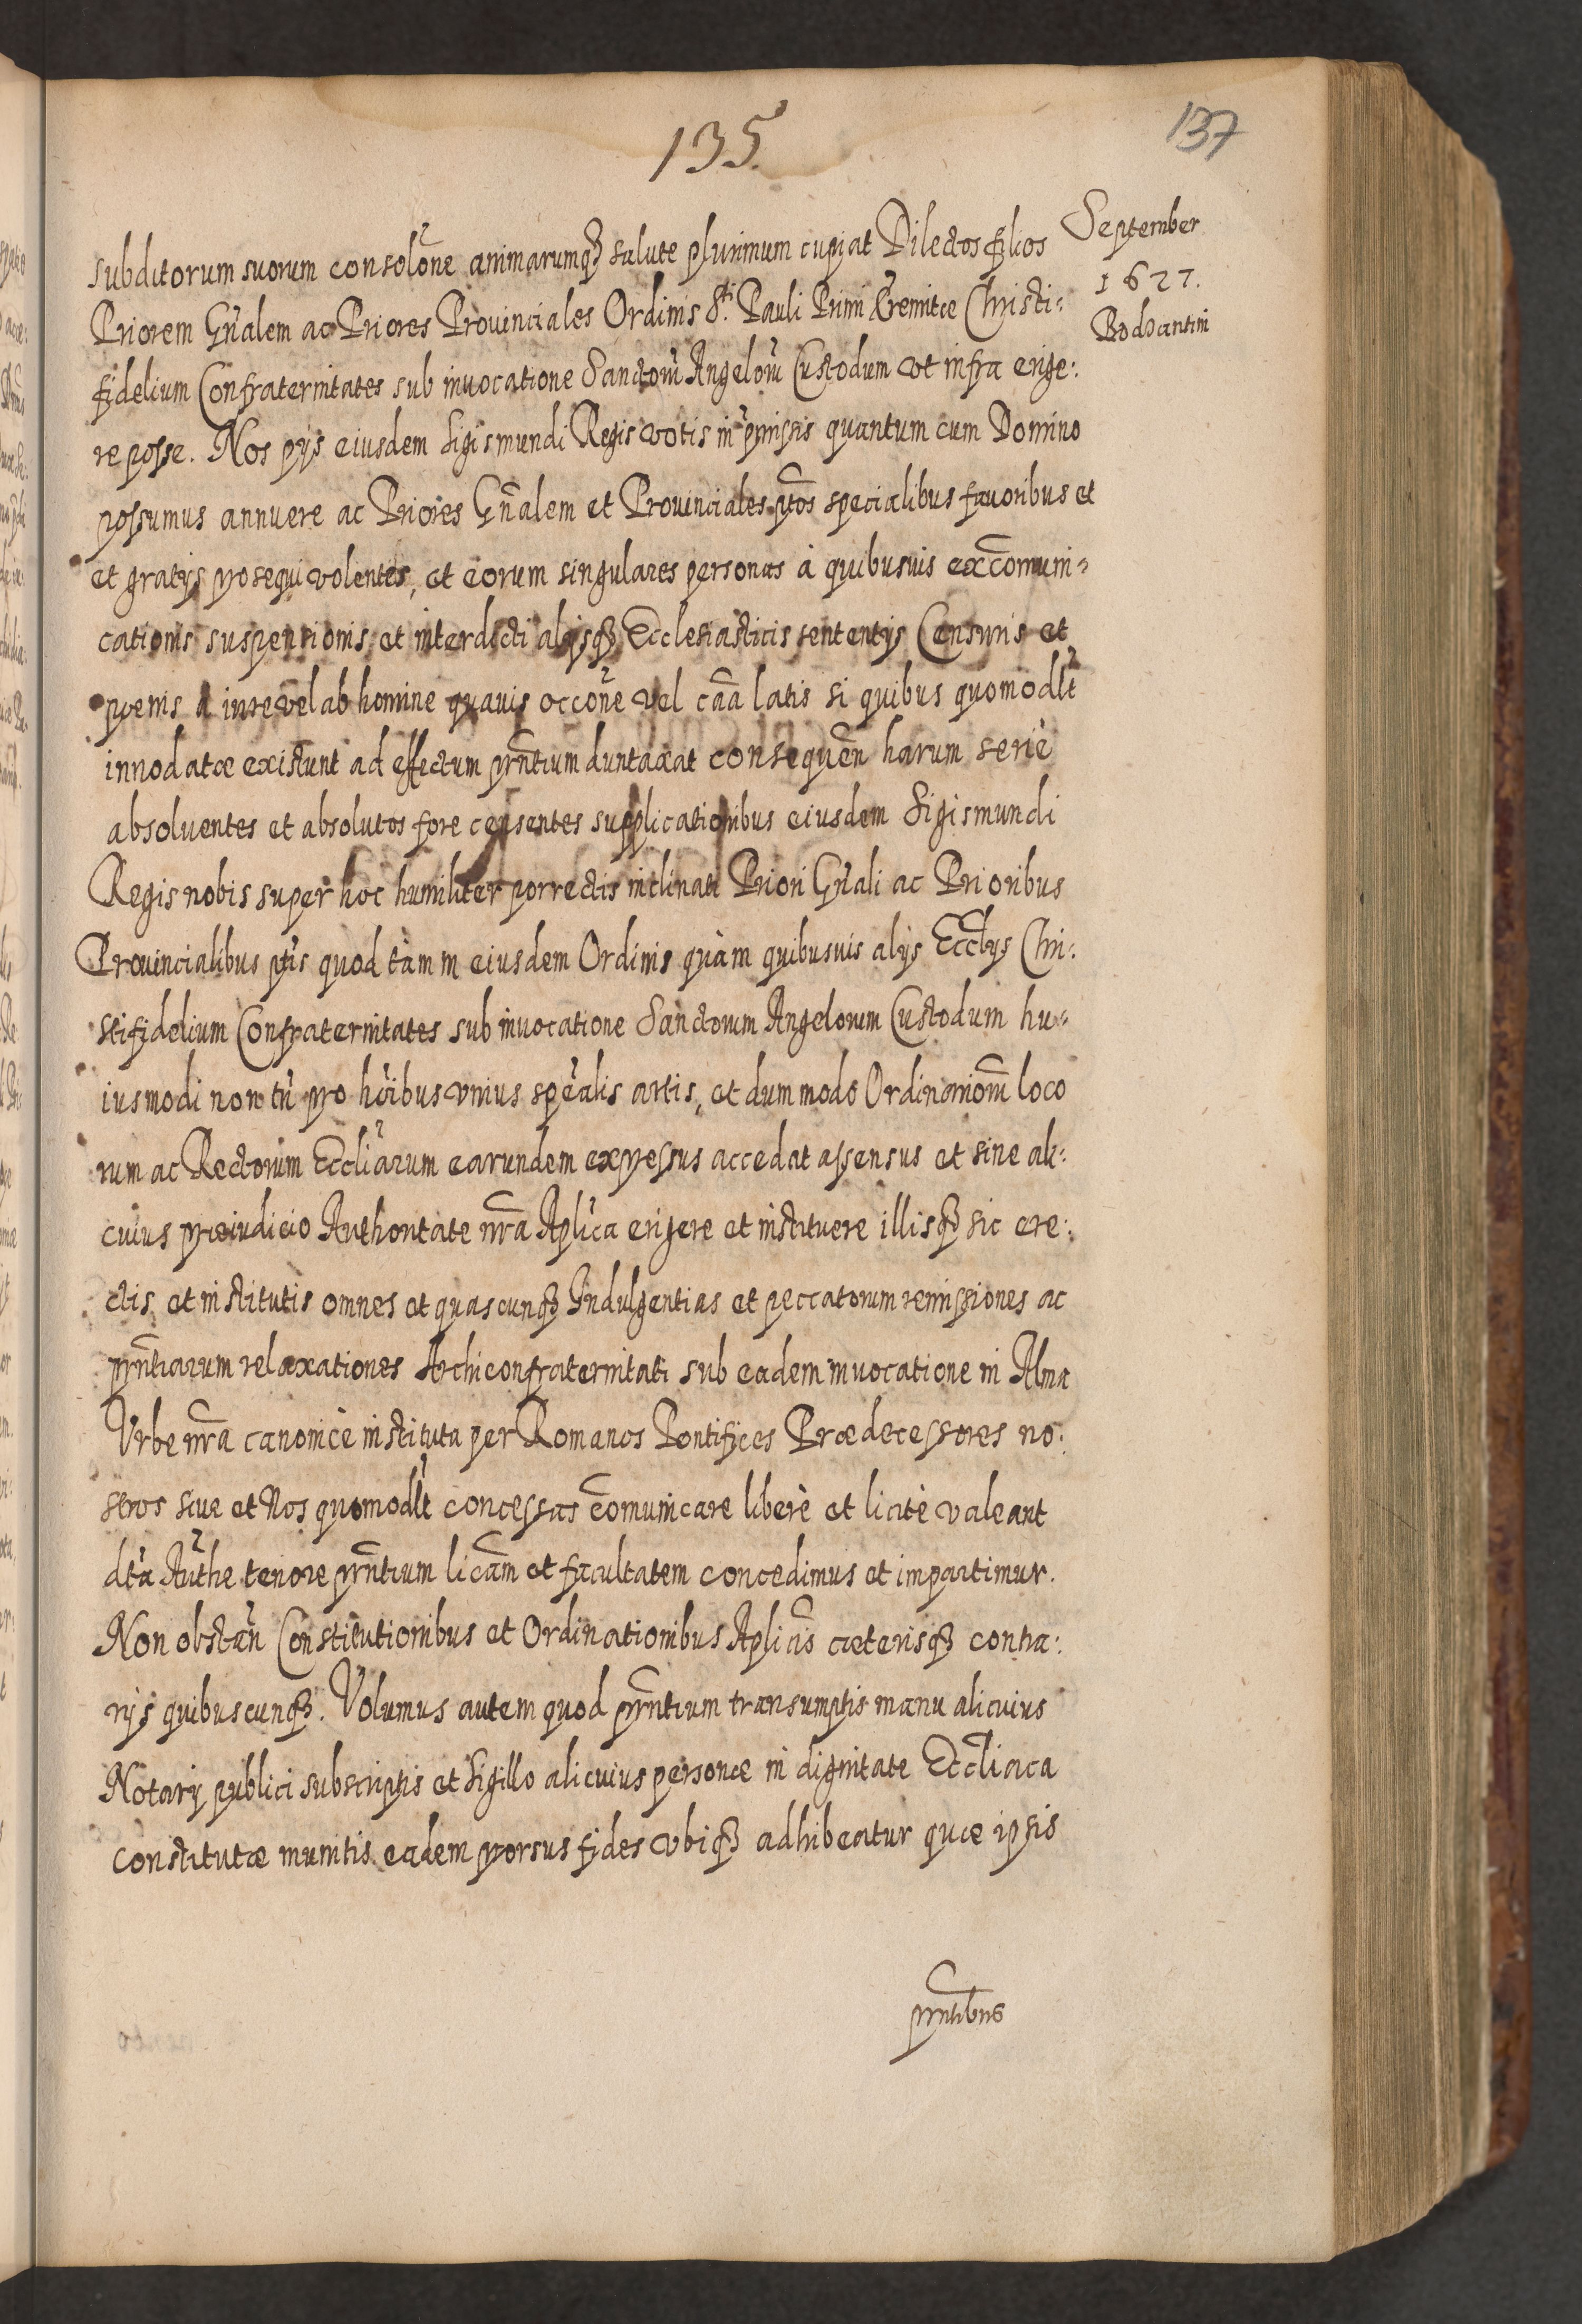 135.
137
September
1627.
Bodzantini
subditorum suorum consolõne animarumq₃ salute plurimum cupiat Dilectos filios
Priorem Gñalem ac Priores Prouinciales Ordinis S.ti Pauli Primi Eremitæ Christi:
fidelium Confraternitates sub inuocatione Sanctorũ Angelorũ Custodum vt infra erige:
re posse. Nos pijs eiusdem Sigismundi Regis votis in p̃missis quantum cum Domino
possumus annuere ac Priores Gñalem et Prouinciales p̃tos specialibus fauoribus et
et gratijs prosequi volentes, et eorum singulares personas à quibusuis excõmuni=
cationis suspensionis, et interdicti alijsq₃ Ecclesiasticis sententijs Censuris et
poenis à iure vel ab homine quauis occõne vel cãa latis si quibus quomodlt̃
innodatæ existunt ad effectum prñtium duntaxat consequẽn harum serie
absoluentes et absolutos fore censentes supplicationibus eiusdem Sigismundi
Regis nobis super hoc humiliter porrectis inclinati Priori Gñali ac Prioribus
Prouincialibus p̃tis quod tàm in eiusdem Ordinis quàm quibusuis alijs Eccl̃ijs Chri:
stifidelium Confraternitates sub inuocatione Sanctorum Angelorum Custodum hu=
iusmodi non tñ pro hõibus vnius spẽalis artis, et dummodo Ordinariorũ loco
rum ac Rectorũm Eccliãrum earundem expressus accedat assensus et sine ali:
cuius præiudicio Authoritate nrã Aplĩca erigere et instituere illisq₃ sic ere:
ctis, et institutis omnes et quascunq₃ Indulgentias et peccatorum remissiones ac
pñtiarum relaxationes Archiconfraternitati sub eadem inuocatione in Alma
Vrbe nrã canonicè instituta per Romanos Pontifices Prædecessores no:
stros siue et Nos quomodlt̃ concessas cõmunicare liberè et licitè valeant
dtã Auth̃e tenore prñtium licãm et facultatem concedimus et impartimur.
Non obstañ Constitutionibus et Ordinationibus Apliciš cæterisq₃ contra:
rijs quibuscunq₃. Volumus autem quod prñtium transumptis manu alicuius
Notarij publici subscriptis et Sigillo alicuius personæ in dignitate Eccl̃iaca
constitutæ munitis eadem prorsus fides vbiq₃ adhibeatur quæ ipsis
prñtibus